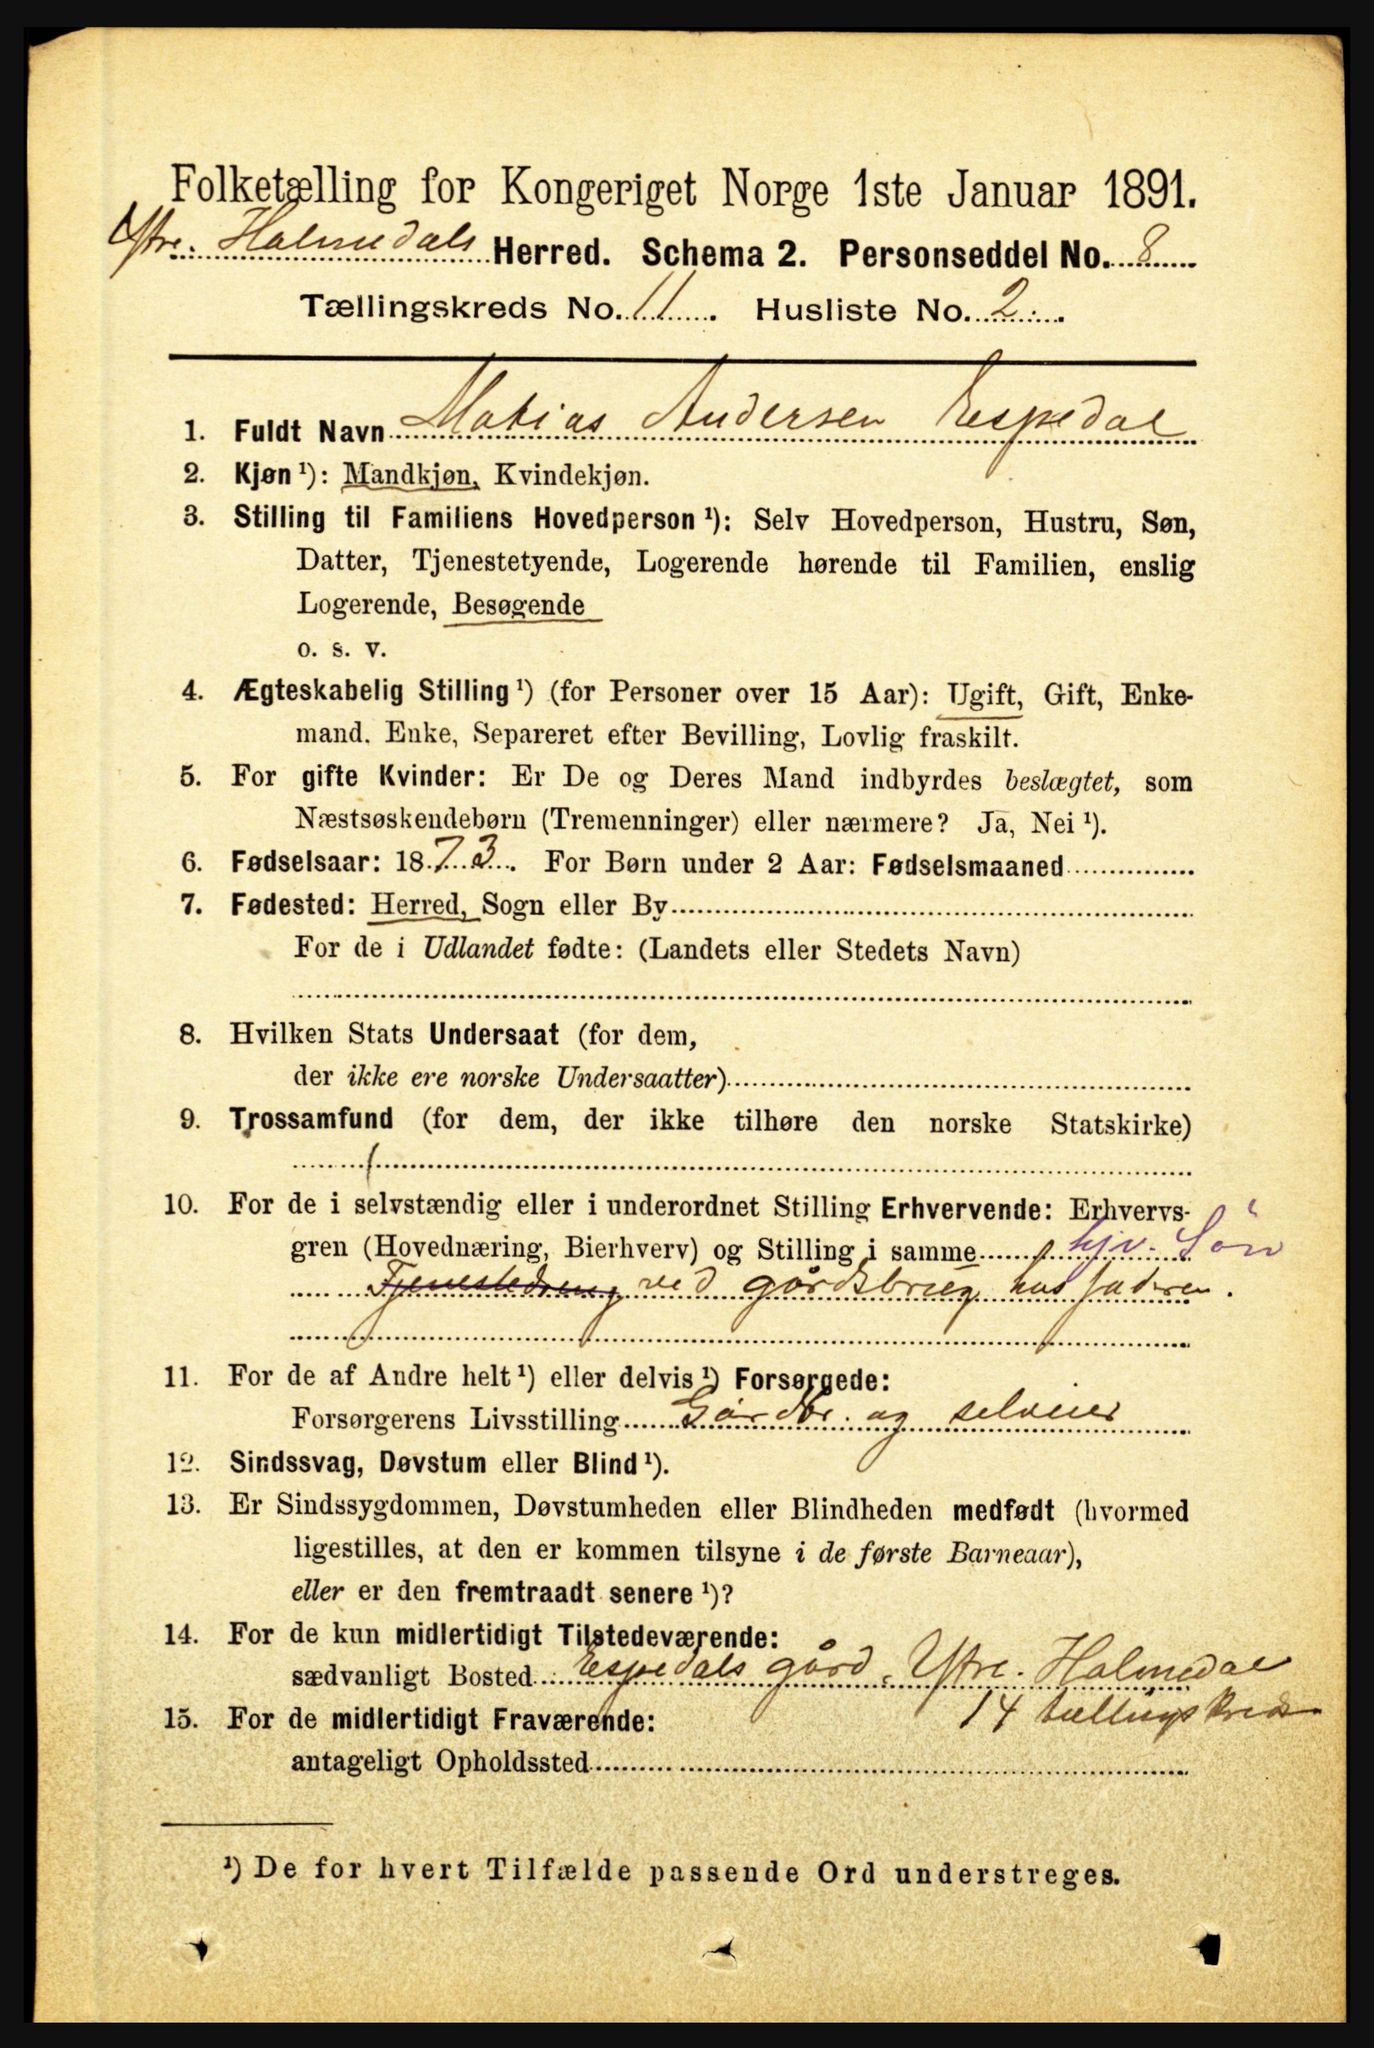 Folketælling for Kongeriget Norge 1ste Januar 1891.
Ytre. Holmedals Herred. Schema 2. Personseddel No. 8
Tællingskreds No. 11. Husliste No. 2.
1. Fuldt Navn Matias Andersen Espedal
2. Kjøn ¹): Mandkjøn, Kvindekjøn.
3. Stilling til Familiens Hovedperson ¹): Selv Hovedperson, Hustru, Søn,
Datter, Tjenestetyende, Logerende hørende til Familien, enslig
Logerende, Besøgende
o. s. v.
4. Ægteskabelig Stilling ¹) (for Personer over 15 Aar): Ugift, Gift, Enke-
mand, Enke, Separeret efter Bevilling, Lovlig fraskilt.
5. For gifte Kvinder: Er De og Deres Mand indbyrdes beslægtet, som
Næstsøskendebørn (Tremenninger) eller nærmere? Ja, Nei ¹).
6. Fødselsaar: 1873. For Børn under 2 Aar: Fødselsmaaned
7. Fødested: Herred, Sogn eller By
For de i Udlandet fødte: (Landets eller Stedets Navn)
8. Hvilken Stats Undersaat (for dem,
der ikke ere norske Undersaatter)
9. Trossamfund (for dem, der ikke tilhøre den norske Statskirke)
10. For de i selvstændig eller i underordnet Stilling Erhvervende: Erhvervs-
gren (Hovednæring, Bierhverv) og Stilling i samme hjv. Sön
Tjenestedreng ved gårdsbrug hos faderen.
11. For de af Andre helt ¹) eller delvis ¹) Forsørgede:
Forsørgerens Livsstilling Gårdbr. og selveier
12. Sindssvag, Døvstum eller Blind ¹).
13. Er Sindssygdommen, Døvstumheden eller Blindheden medfødt (hvormed
ligestilles, at den er kommen tilsyne i de første Barneaar),
eller er den fremtraadt senere ¹)?
14. For de kun midlertidigt Tilstedeværende:
sædvanligt Bosted Espedals gård, Ytre. Holmedal
14 tællingskreds
15. For de midlertidigt Fraværende:
antageligt Opholdssted
¹) De for hvert Tilfælde passende Ord understreges.